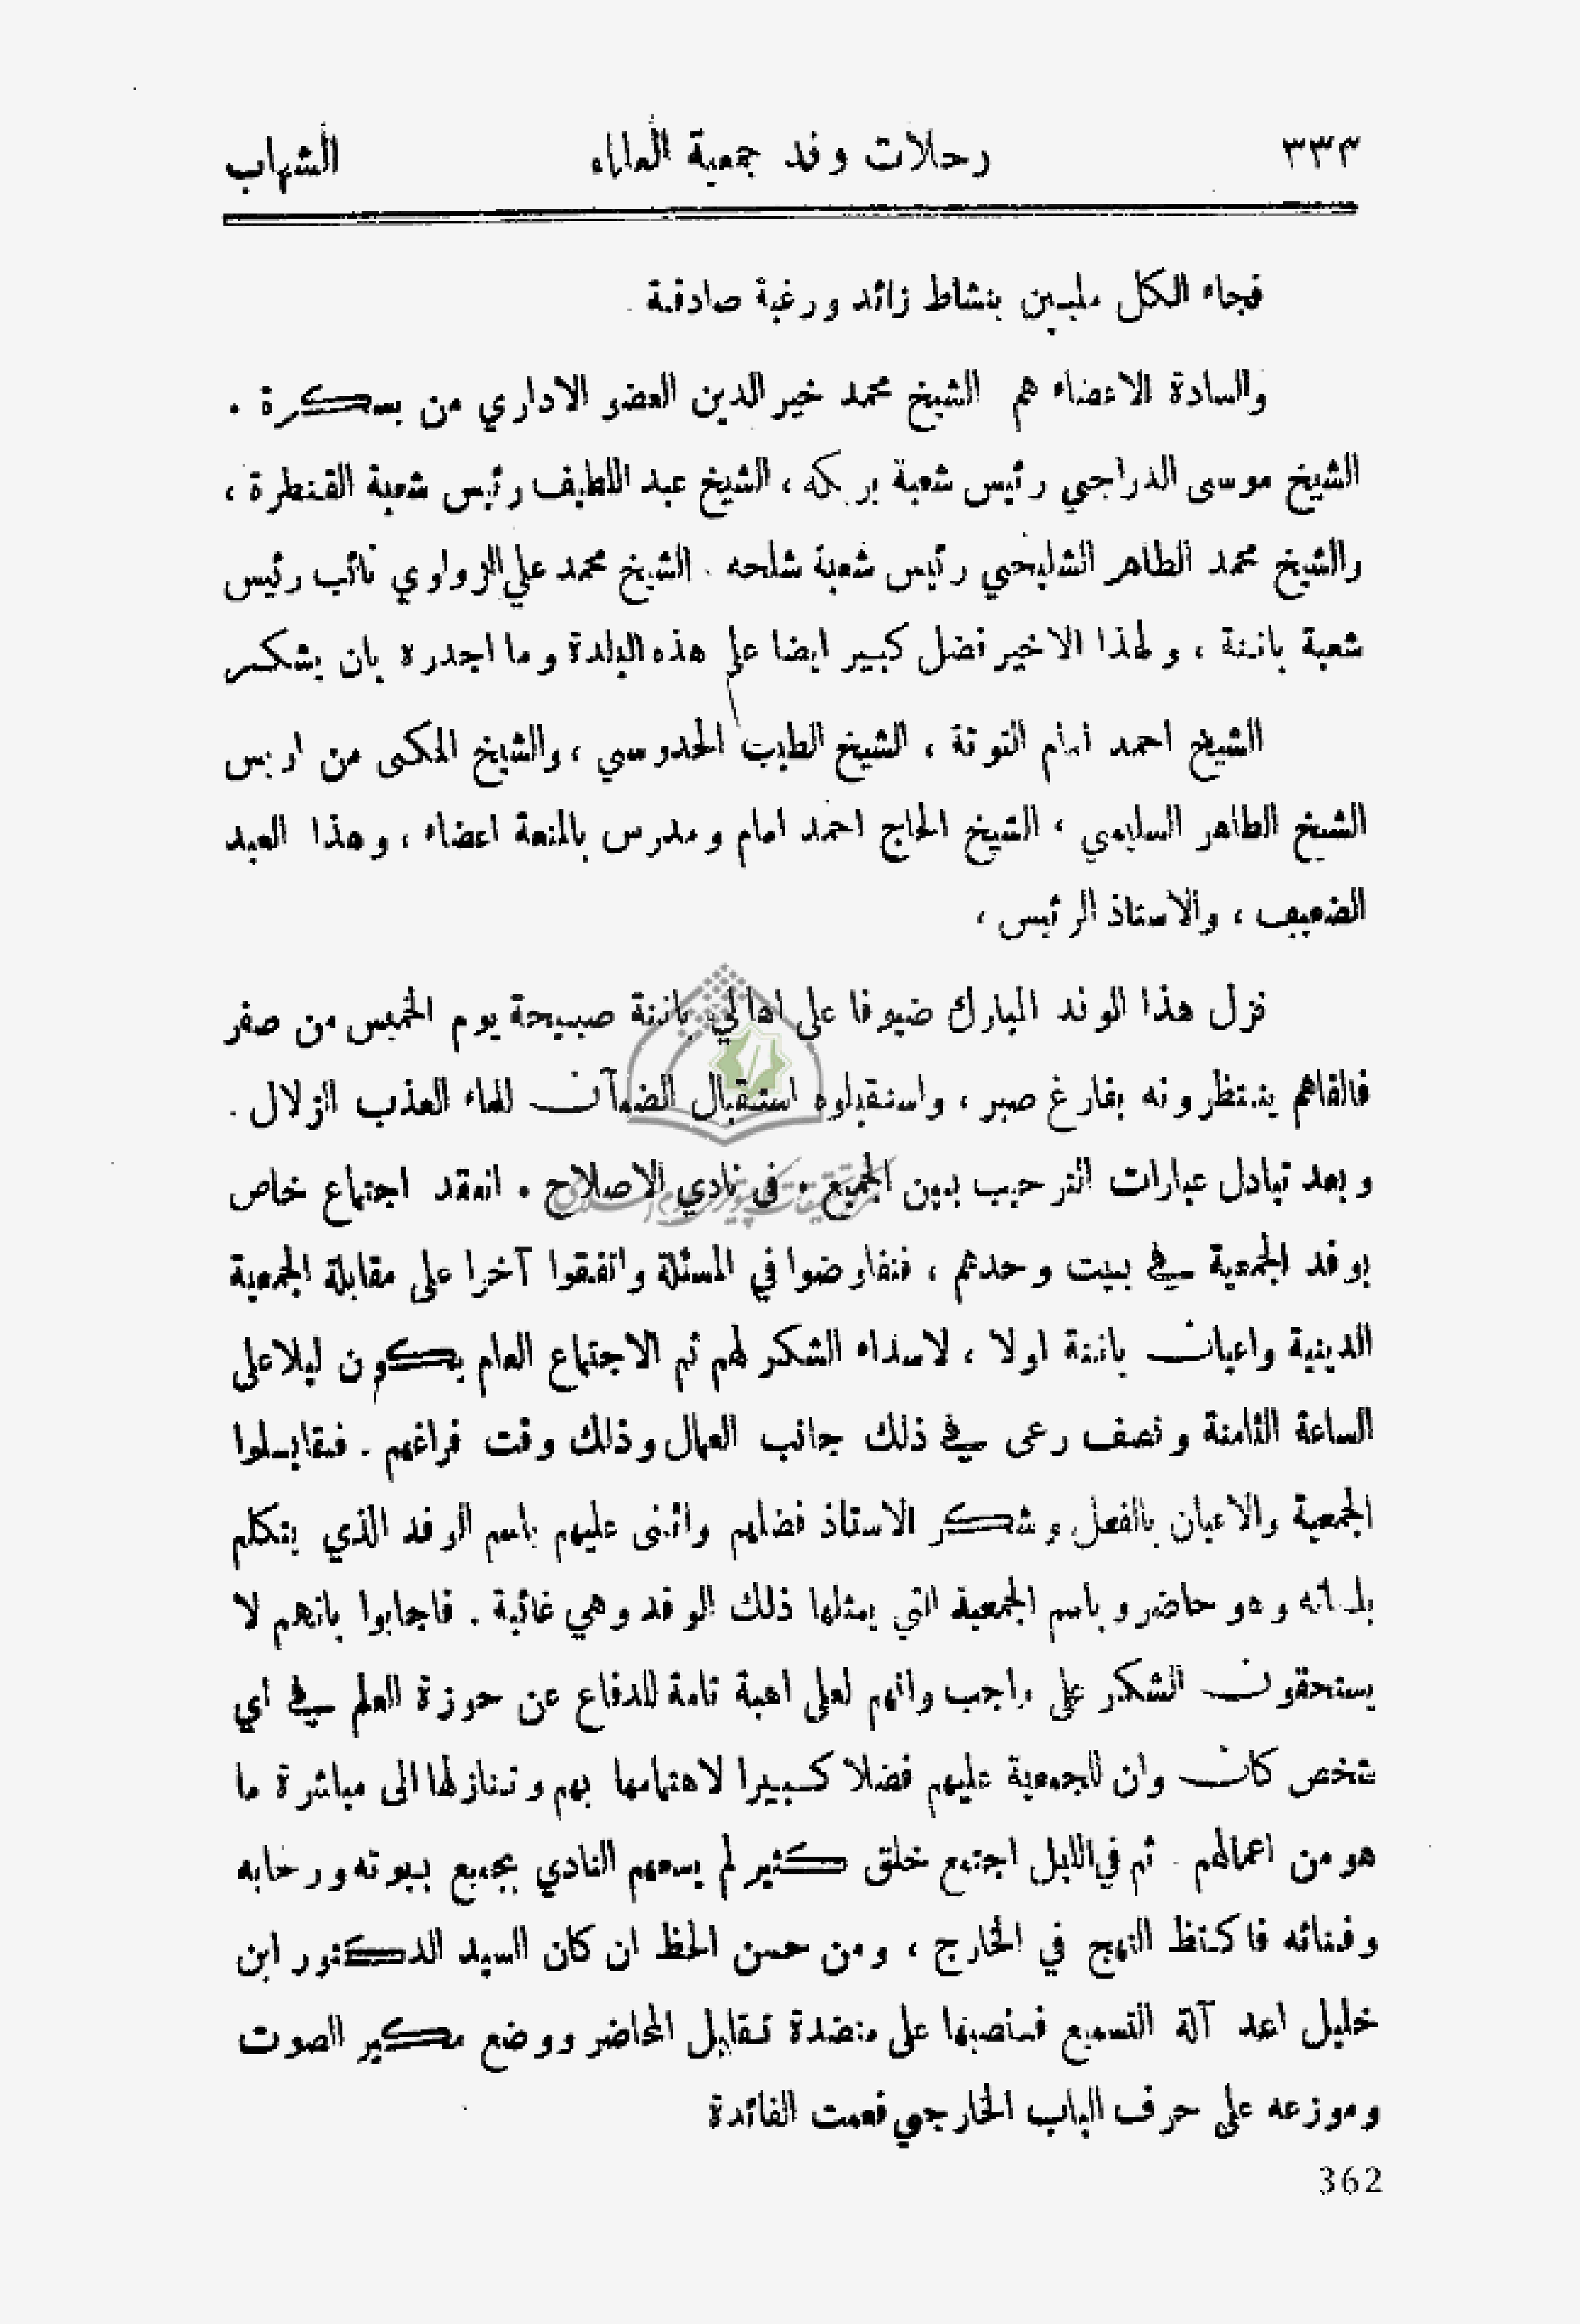 ٣٣٣ رحلات وفد جمعية العلماء الشهاب
فجاء الكل ملبين بنشاط زائد ورغبة صادقة .
والسادة الاعضاء هم الشيخ محمد خير الدين العضو الاداري من بسكرة .
الشيخ موسى الدراجي رئيس شعبة بريكه ، الشيخ عبد اللطيف رئيس شعبة القنطرة ،
والشيخ محمد الطاهر الشليحي رئيس شعبة شلحه . الشيخ محمد علي الزواوي نائب رئيس
شعبة باتنة ، ولهذا الاخير فضل كبير ايضا على هذه البلدة وما اجدره بان يشكر
الشيخ احمد امام التوتة ، الشيخ الطيب الحدوسي ، والشيخ المكى من اريس
الشيخ الطاهر السليمي ، الشيخ الحاج احمد امام ومدرس بالمنعة اعضاء ، وهذا العبد
الضعيف ، والاستاذ الرئيس ،
نزل هذا الوفد المبارك ضيوفا على اهالي باتنة صبيحة يوم الخميس من صفر
فالفاهم ينتظرونه بفارغ صبر ، واستقبلوه استقبال الضمآن للماء العذب الزلال .
وبعد تبادل عبارات الترحيب بين الجميع . فى نادي الاصلاح . انعقد اجتماع خاص
بوفد الجمعية في بيت وحدهم ، فتفاوضوا في المسئلة واتفقوا آخرا على مقابلة الجمعية
الدينية واعيان باتنة اولا ، لاسداء الشكر لهم ثم الاجتماع العام يكون ليلا على
الساعة الثامنة ونصف رعى في ذلك جانب العمال وذلك وقت فراغهم . فقابلوا
الجمعية والاعيان بالفعل وشكر الاستاذ فضلهم واثنى عليهم باسم الوفد الذي يتكلم
بلسانه وهو حاضر وباسم الجمعية التي يمثلها ذلك الوفد وهي غائبة . فاجابوا بانهم لا
يستحقون الشكر على واجب وانهم لعلى اهبة تامة للدفاع عن حوزة العلم في اي
شخص كان وان للجمعية عليهم فضلا كبيرا لاهتمامها بهم وتنازلها الى مباشرة ما
هو من اعمالهم . ثم في الليل اجتمع خلق كثير لم يسعهم النادي بجميع بيوته ورحابه
وفنائه فاكتظ النهج في الخارج ، ومن حسن الحظ ان كان السيد الدكتور ابن
خليل اعد آلة التسميع فنصبها على منضدة تقابل المحاضر ووضع مكبر الصوت
وموزعه على حرف الباب الخارجي فعمت الفائدة
362